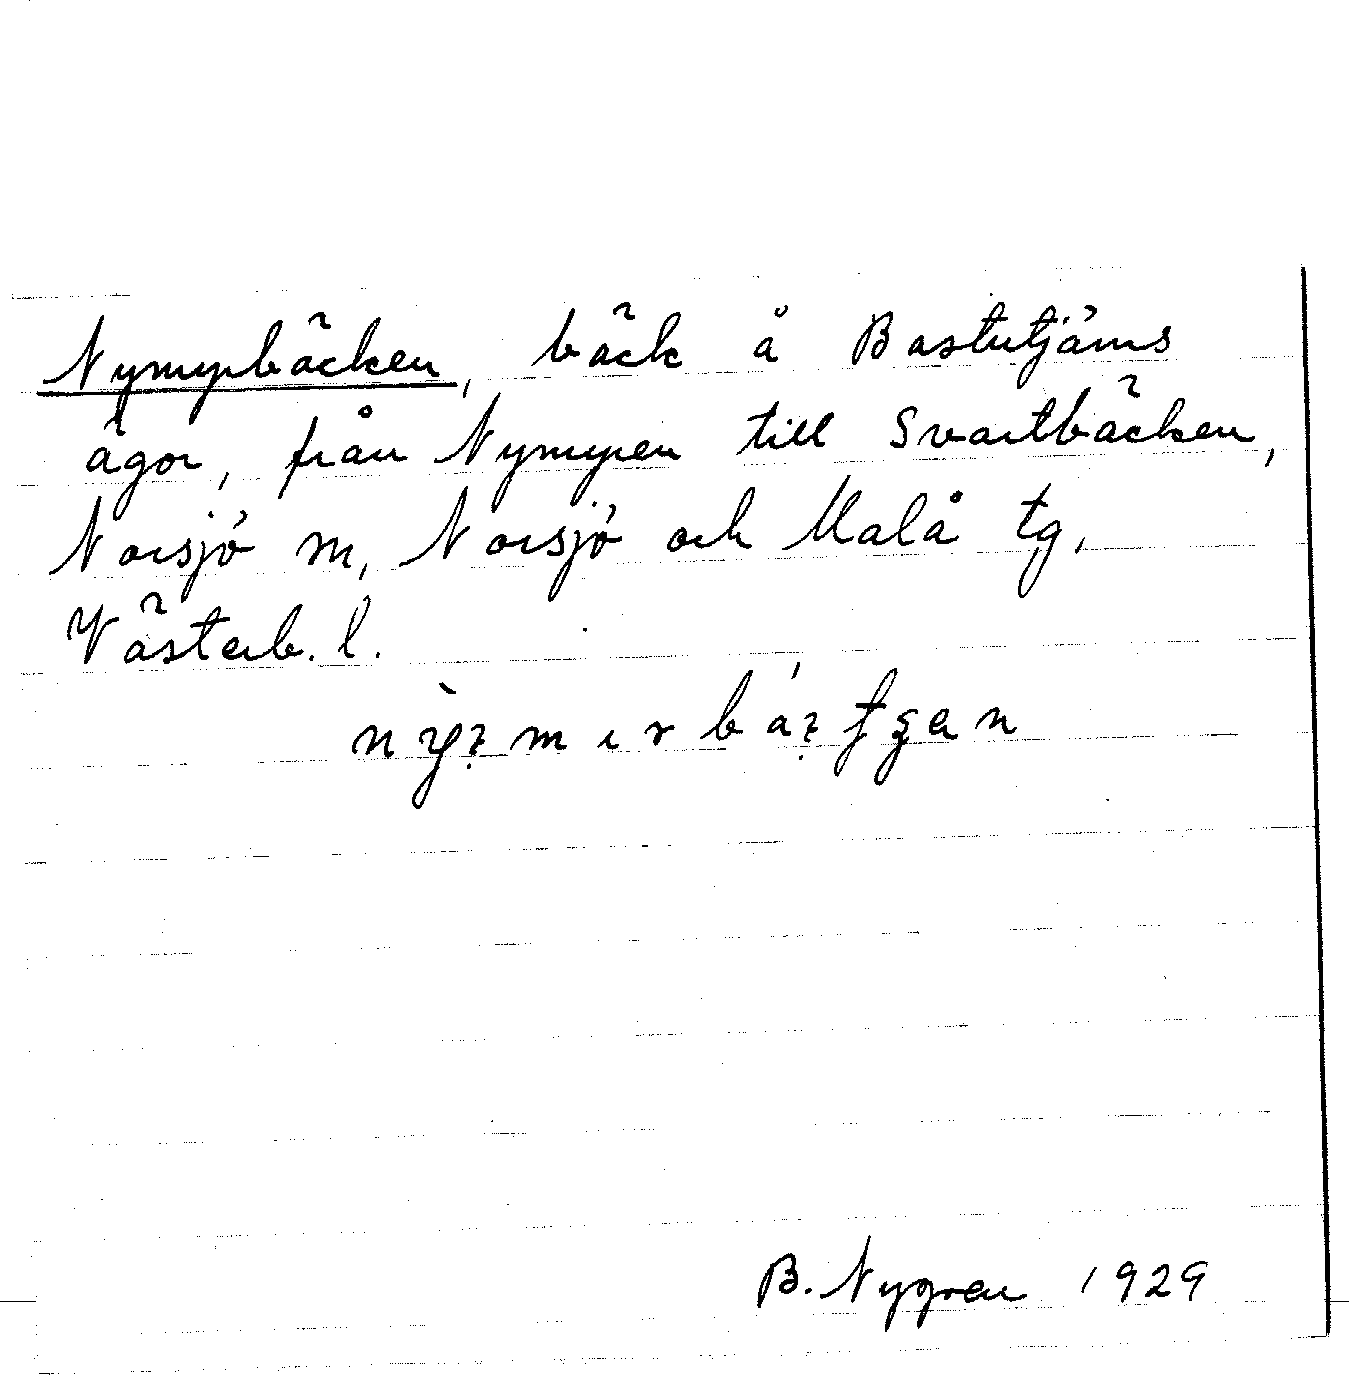 Nymyrbäcken, bäck å Bastutjärns
ägor, från Nymyren till Svartbäcken,
Norsjö m, Norsjö och Malå tg,
Västerb. l.
B. Nygren 1929